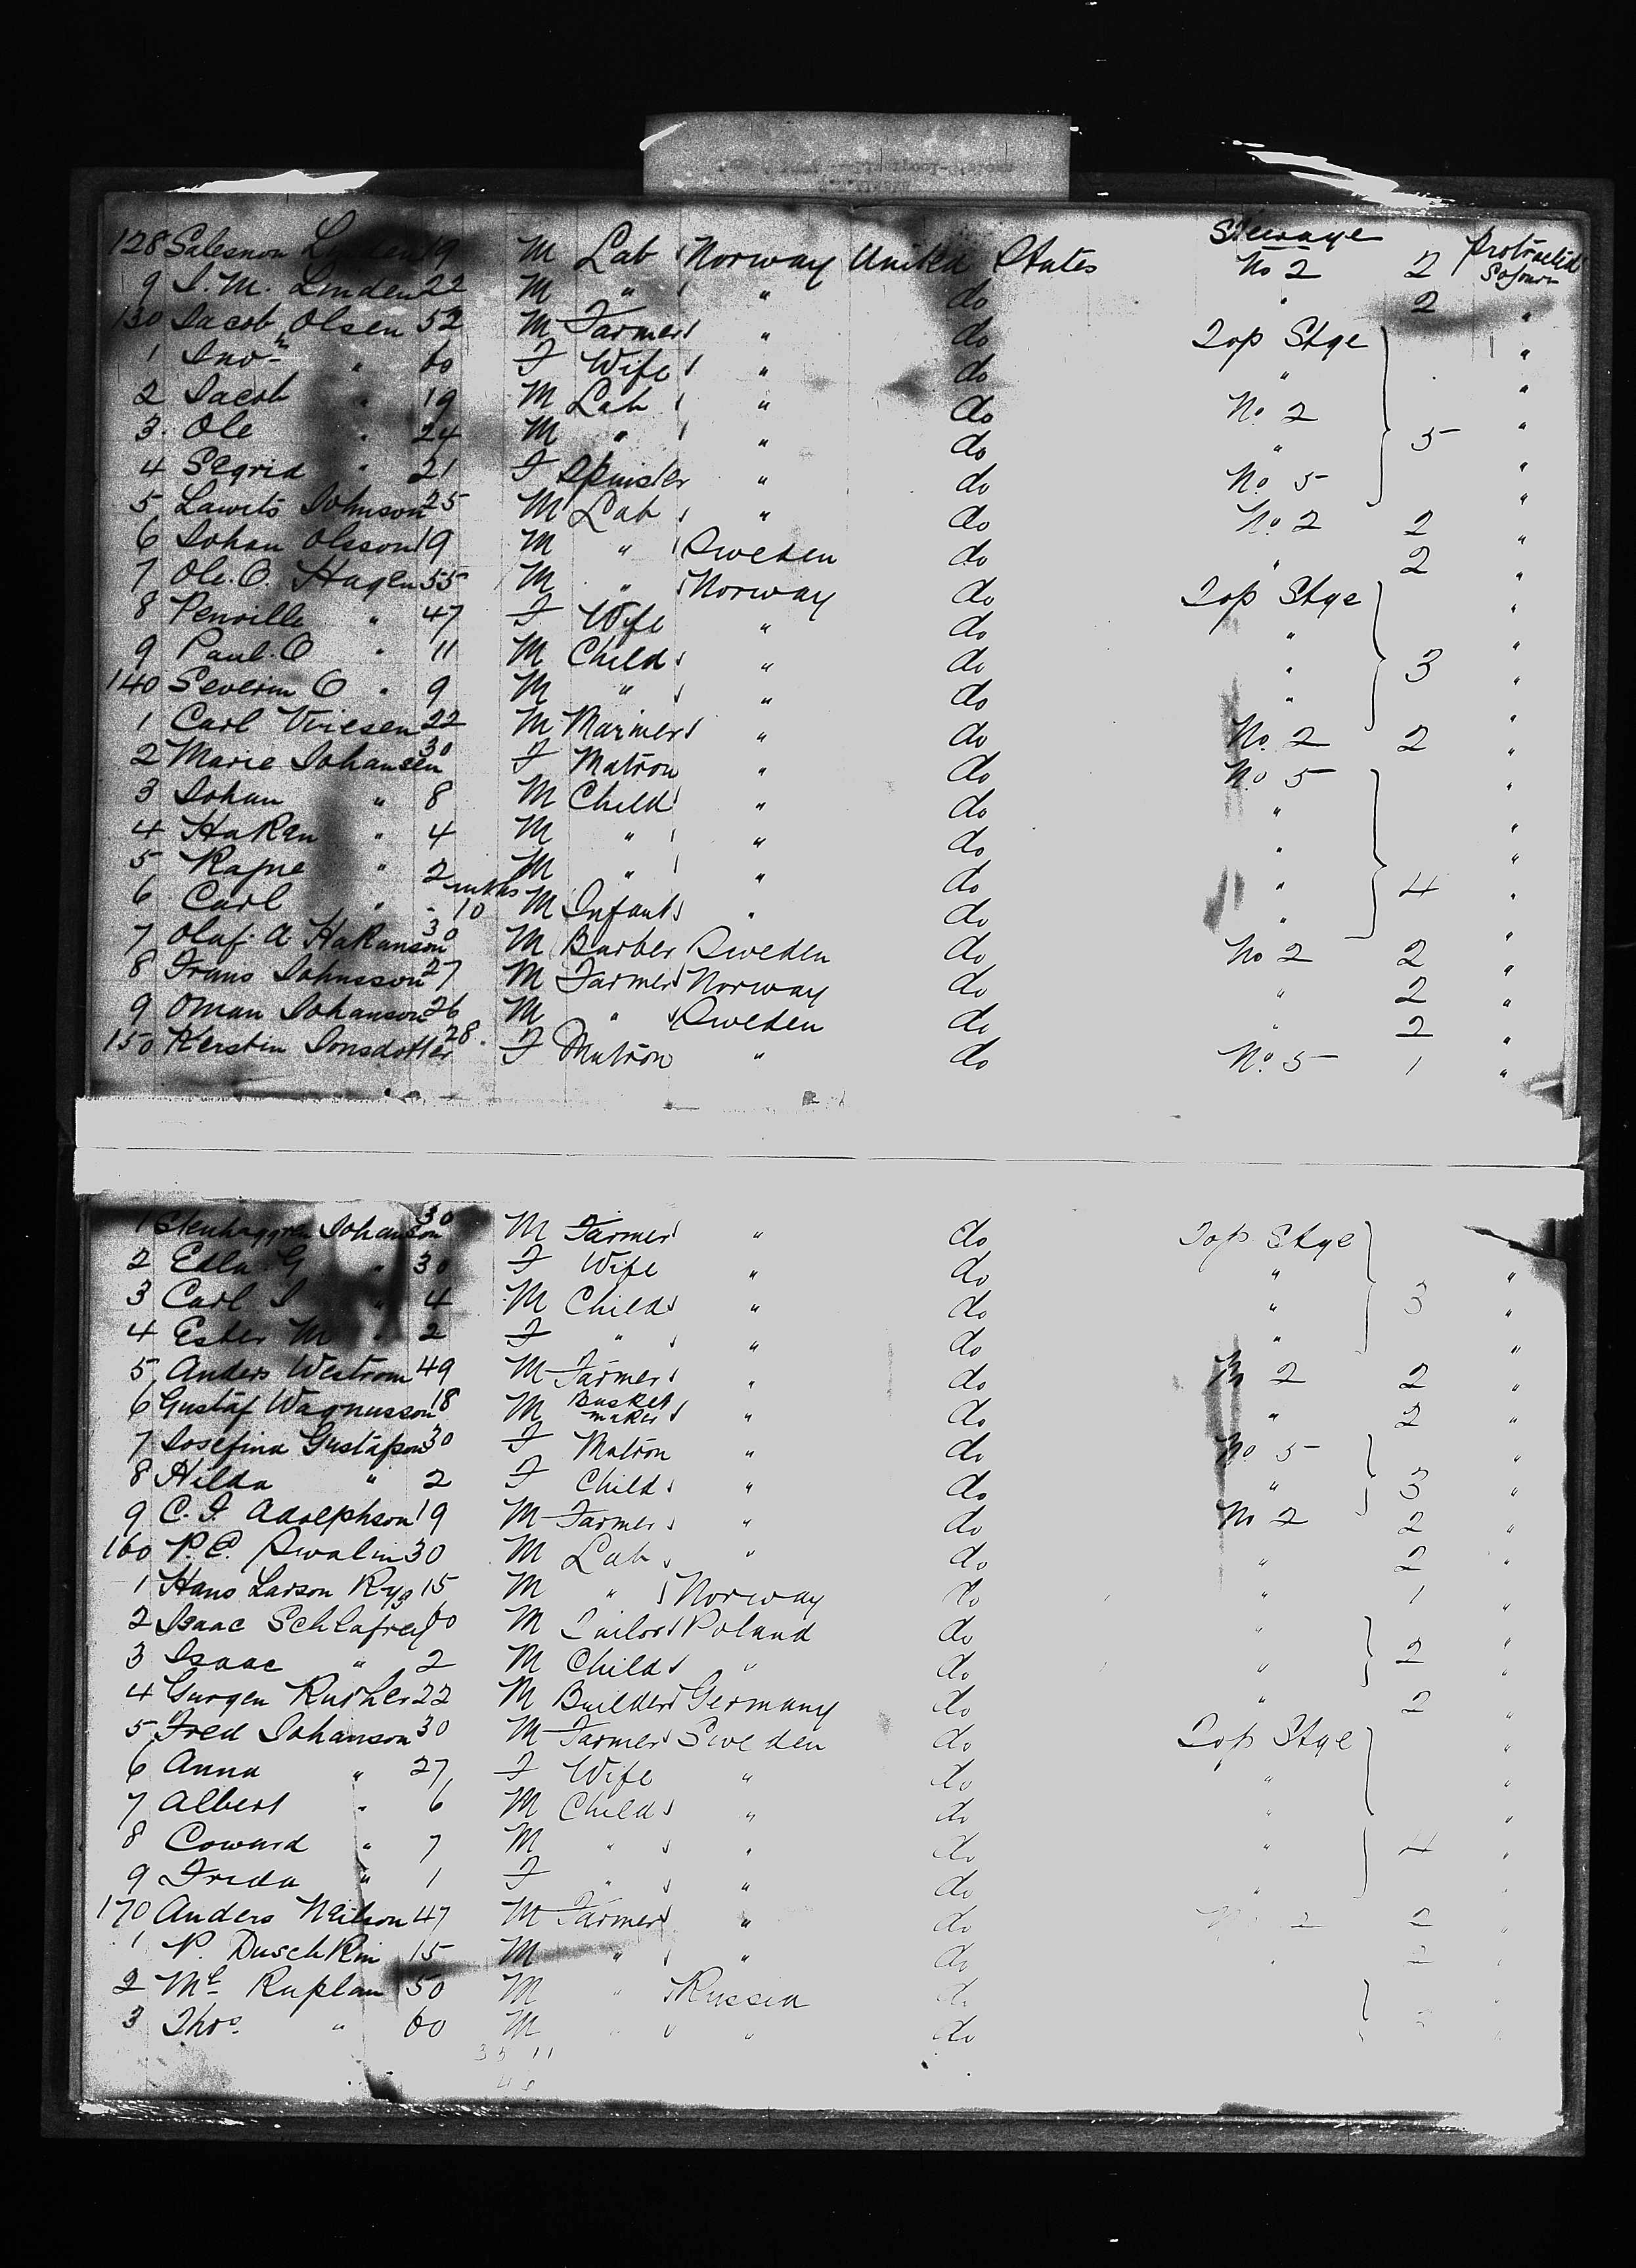 Steerage
128 Salesnon 19 M Lab Norway United States No 2 2 Protracted Sojourn
9 I. M. Linden 22 M " " do " 2 "
130 Jacob Olsen 52 M Farmer " do Top Stge "
1 " 60 F Wife " do " "
2 Jacob " 19 M Lab " do No. 2 "
3 Ole " 24 M " " do " 5 "
4 Segrid " 21 F Spinster " do No. 5 "
5 Lawits Johnson 25 M Lab " do No. 2 2 "
6 Johan Olsson 19 M " Sweden do " 2 "
7 Ole. O. Hagen 55 M " Norway do Top Stge "
8 Penville " 47 F Wife " do " "
9 Paul. O " 11 M Child " do " 3 "
140 Severin O " 9 M " " do " "
1 Carl 22 M Mariner " do No. 2 2 "
2 Marie Johansen 30 F Matron " do No 5 "
3 Johan " 8 M Child " do " "
4 Haken " 4 M " " do " "
5 Ragne " 2 M " " do " 4 "
6 Carl " 10 mths M Infant " do " "
7 Olaf. A Hakanson 30 M Barber Sweden do No 2 2 "
8 Frans Johnsson 27 M Farmer Norway do " 2 "
9 Oman Johanson 26 M " Sweden do " 2 "
150 Kerstin Jonsdotter 28. F Matron " do No. 5 1 "
1 Johanson 30 M Farmer " do Top Stge
2 Edla G " 30 F Wife " do " "
3 Carl J " 4 M Child " do " 3 "
4 Ester M " 2 F " " do " "
5 Anders Westrom 49 M Farmer " do No 2 2 "
6 Gustaf Wagnusson 18 M Basket maker " do " 2 "
7 Josefina Gustafson 30 F Matron " do No 5 "
8 Hilda " 2 F Child " do " 3 "
9 C. J. Adolphson 19 M Farmer " do No 2 2 "
160 P. E. Swalin 30 M Lab " do " 2 "
1 Hans Larson Ryg 15 M " Norway do " 1 "
2 Isaac Schlafrey 60 M Tailor Poland do " "
3 Isaac " 2 M Child " do " 2 "
4 Gurgen 22 M Builder Germany do " 2 "
5 Fred Johanson 30 M Farmer Sweden do Top Stge "
6 Anna " 27 F Wife " do " "
7 Albert " 6 M Child " do " "
8 Coward " 7 M " " do " 4 "
9 Frida " 1 F " " do " "
170 Anders Neilson 47 M Farmer " do No 2 2 "
1 P. Duschkin 15 M " " do " 2 "
2 Kaplan 50 M " Russia do "
3 Thos. " 60 M " " do "
35 11